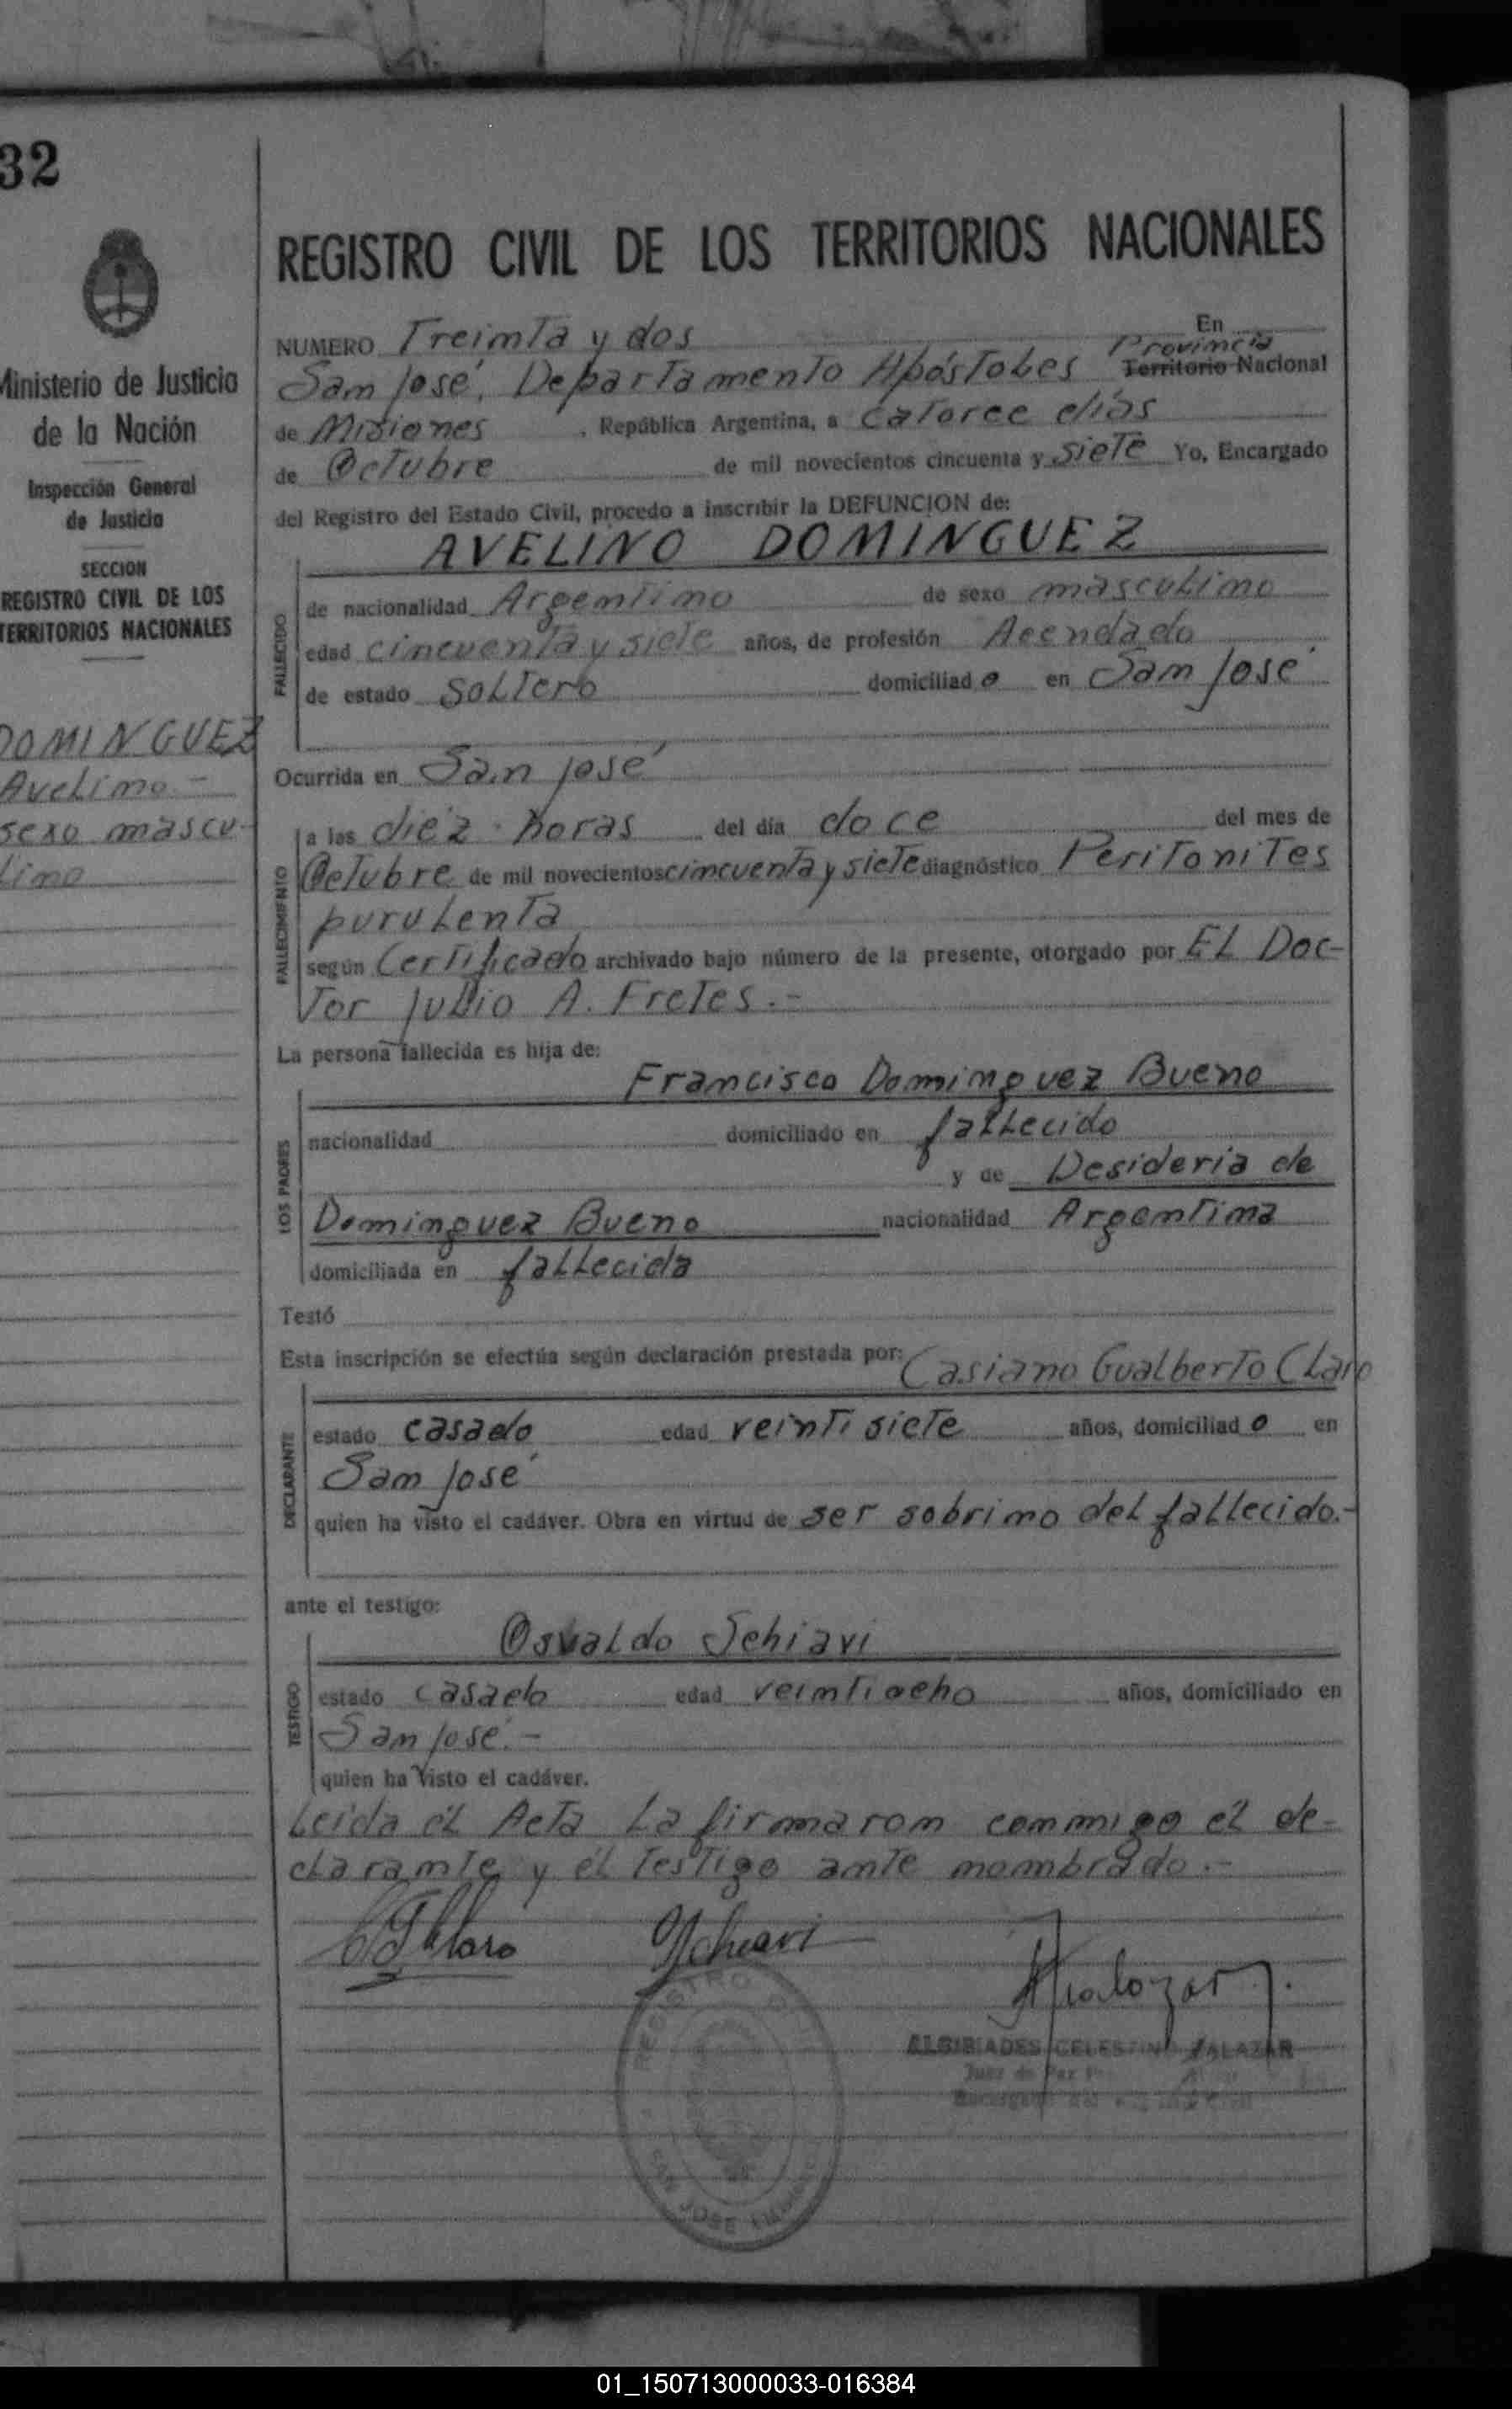 32
Ministerio de Justicia
de la Nación
Inspección General
de Justicia
SECCION
REGISTRO CIVIL DE LOS
TERRITORIOS NACIONALES
DOMINGUEZ
Avelimo -
sexo mascu-
limo
REGISTRO CIVIL DE LOS TERRITORIOS NACIONALES
NUMERO Treimta y dos En
Sam José, Departamento Apóstoles Provincia Territorio Nacional
de Misiones, República Argentina, a catorce días
de Octubre de mil novecientos cincuenta y siete Yo, Encargado
del Registro del Estado Civil, procedo a inscribir la DEFUNCION de:
AVELINO DOMINGUEZ
FALLECIDO
de nacionalidad Argemtimo de sexo masculimo
edad cincuenta y siete años, de profesión Acendado
de estado soltero domiciliado en Sam José
Ocurrida en San José
FALLECIMIENTO
a las diéz horas del día doce del mes de
Octubre de mil novecientos cimcuenta y siete diagnóstico Peritonites
purulenta
según Certificado archivado bajo número de la presente, otorgado por EL Doc-
tor Julio A. Fretes.-
La persona fallecida es hija de:
LOS PADRES
Framcisco Dominguez Bueno
nacionalidad domiciliado en fallecido
y de Desideria de
Dominguez Bueno nacionalidad Argemtima
domiciliada en fallecida
Testó
Esta inscripción se efectúa según declaración prestada por: Casiano Gualberto Claro
DECLARANTE
estado casado edad veintisiete años, domiciliado en
Sam José
quien ha visto el cadáver. Obra en virtud de ser sobrimo del fallecido.-
ante el testigo:
TESTIGO
Osvaldo Schiavi
estado casado edad veimtiocho años, domiciliado en
San José.-
quien ha visto el cadáver.
Leida él Acta la firmarom commigo él de-
claramte y él testigo amte mombrado.-
CGClaro OSchiavi
ALCIBIADES CELESTINO SALAZAR
Juez de Paz
REGISTRO CIVIL
SAN JOSE
01_150713000033-016384